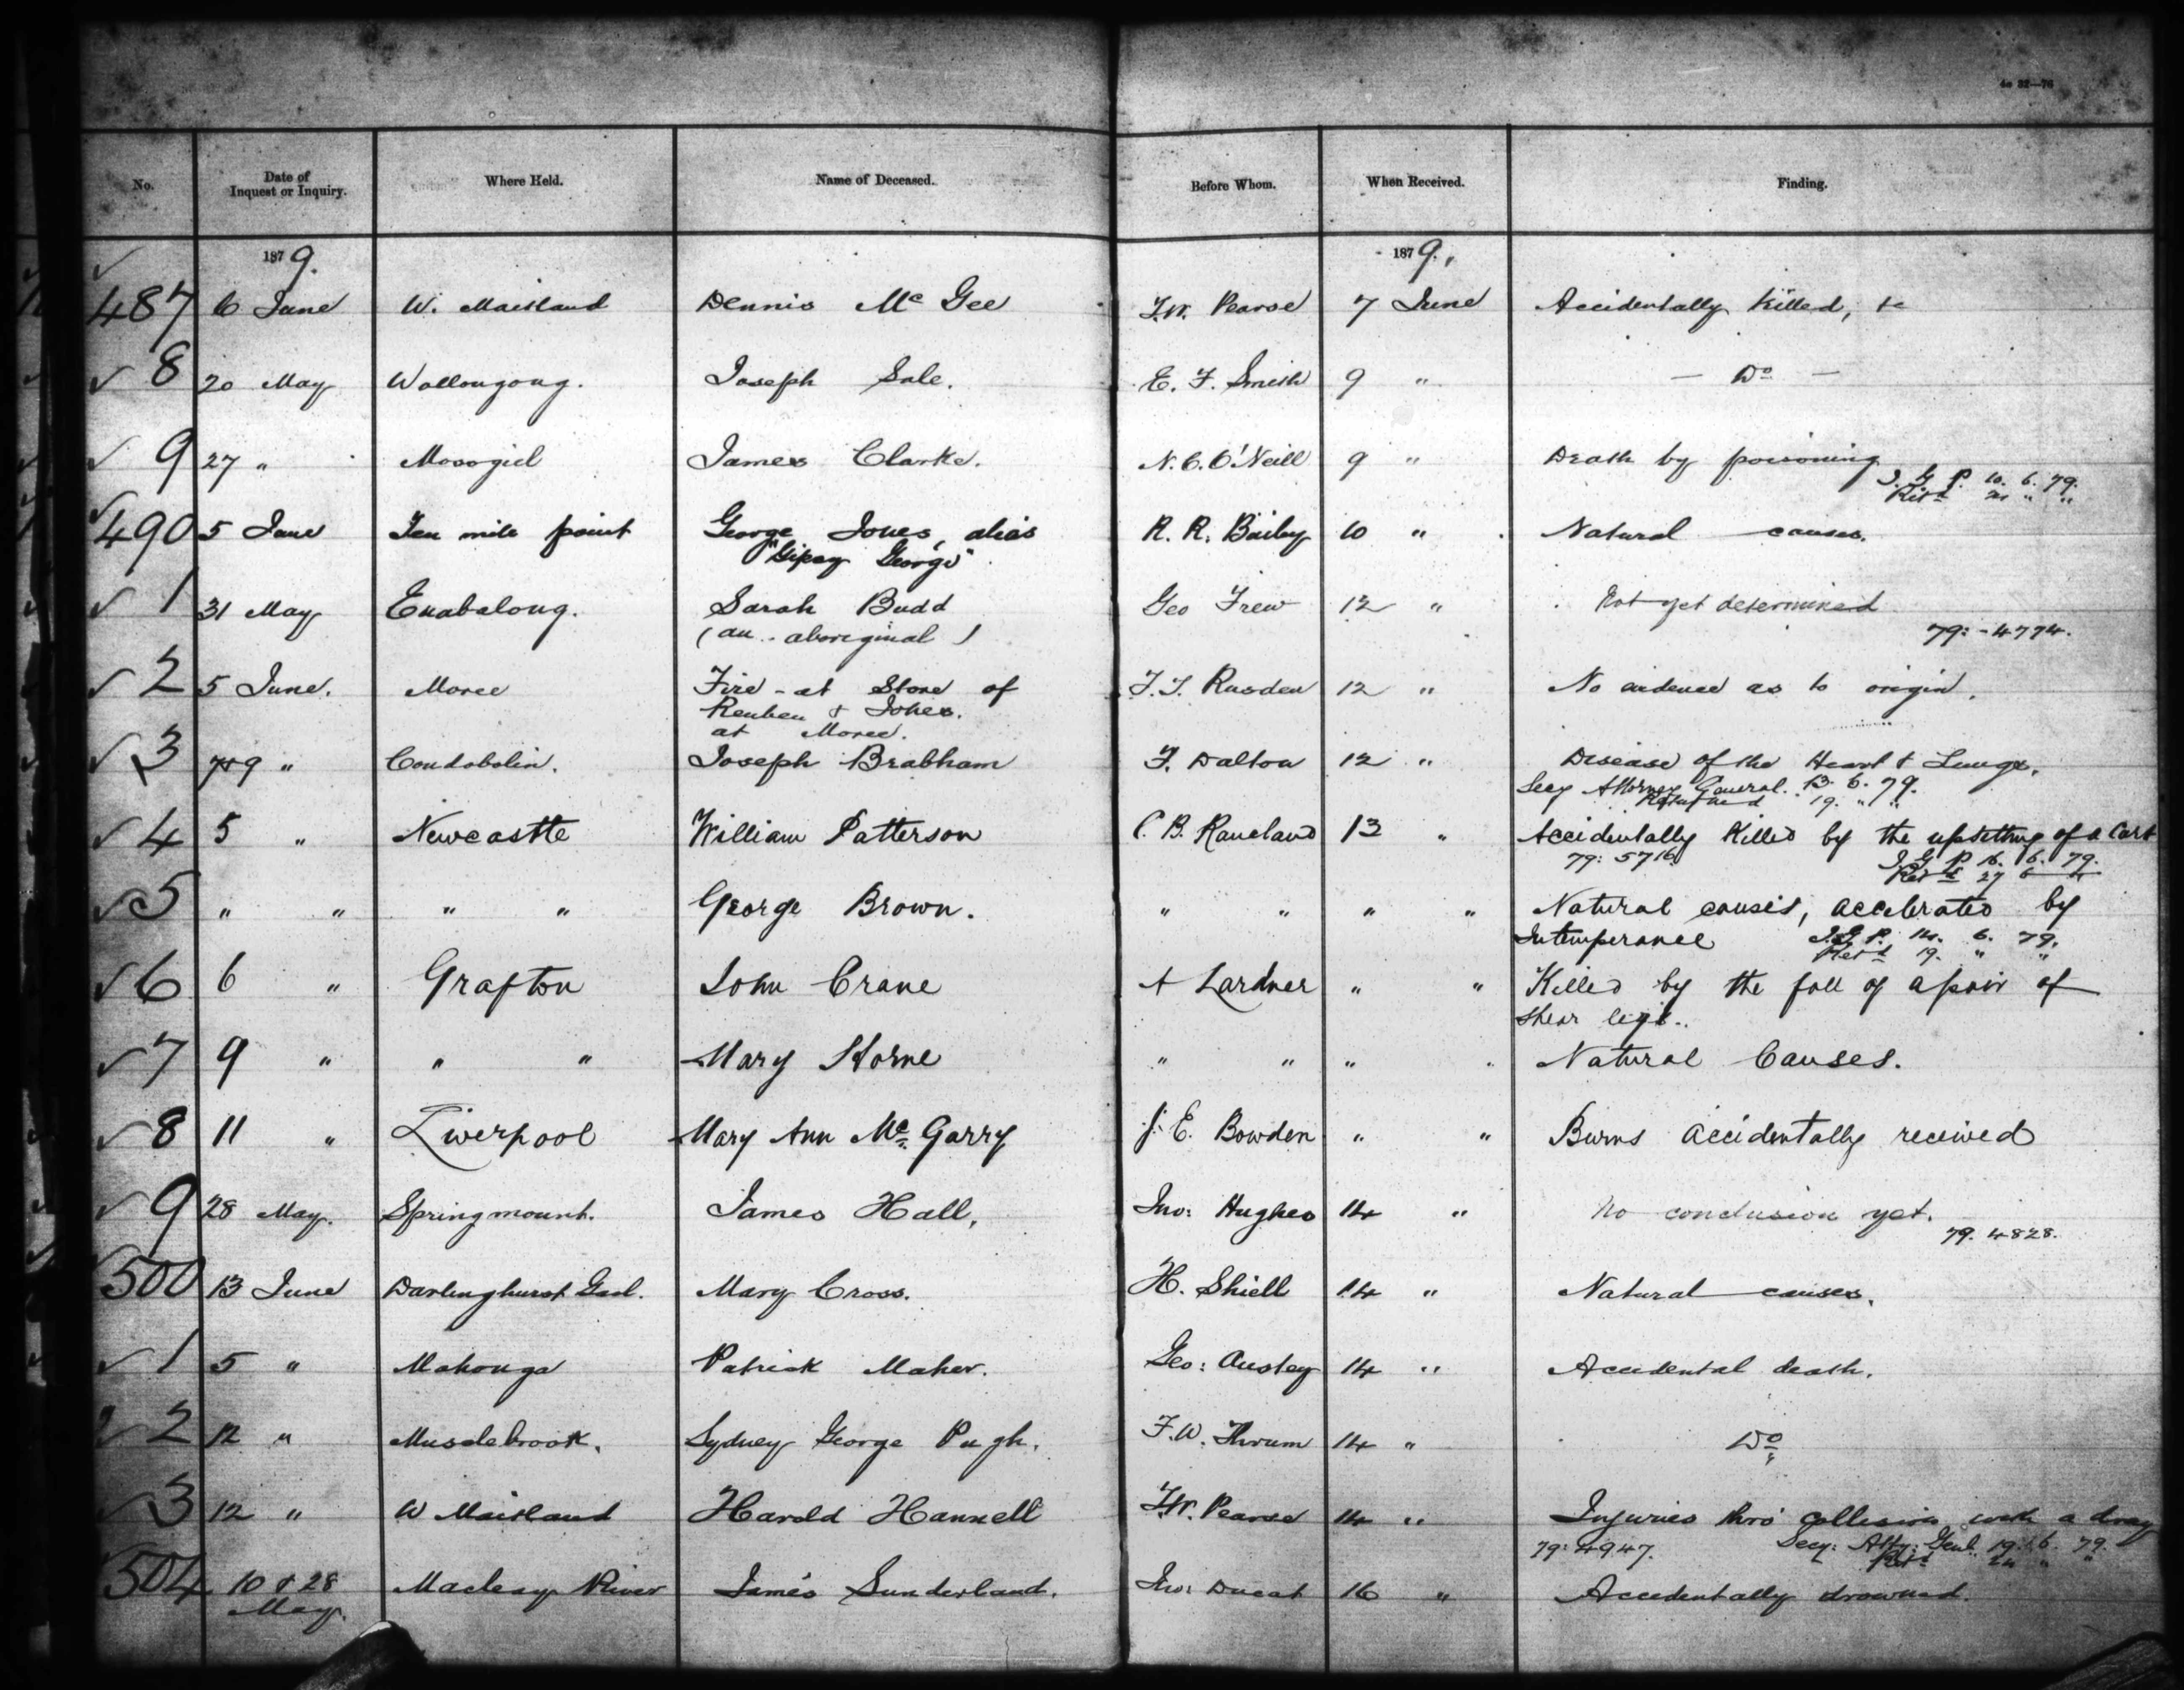 4o 32—76
No. Date of Inquest or Inquiry. Where Held. Name of Deceased. Before Whom. When Received. Finding.
1879. 1879.
487 6 June W. Maitland Dennis Mc Gee T.W. Pearse 7 June Accidentally killed, &c
8 20 May Wollongong. Joseph Sale. E. F. Smith 9 " — Do —
9 27 " Mossgiel James Clarke. N. C. O'Neill 9 " Death by poisoning
I. G. P. 10. 6. 79.
Retd " "
490 5 June Ten mile point George Jones, alias R. R. Bailey 10 " Natural causes.
"Gipsy George"
1 31 May Euabalong. Sarah Budd Geo Frew 12 " Not yet determined
(an aboriginal) 79: -4774.
2 5 June. Moree Fire - at Store of T. T. Rusden 12 " No evidence as to origin.
Reuben & Jones.
at Moree.
3 7&9 " Condobolin. Joseph Brabham F. Dalton 12 " Disease of the Heart & Lungs.
Secy Attorney General. 13. 6. 79.
Returned 19. " "
4 5 " Newcastle William Patterson C. B. Ranclaud 13 " Accidentally Killed by the upsetting of a Cart
79: 5716 I. G. P. 16. 6. 79.
Retd 27 6 "
5 " " " " George Brown. " " " " Natural causes, accelerated by
Intemperance I.G.P. 14. 6. 79.
Retd 19. " "
6 6 " Grafton John Crane A Lardner " " Killed by the fall of a pair of
shear legs.
7 9 " " " Mary Horne " " " Natural Causes.
8 11 " Liverpool Mary Ann Mc Garry J. E. Bowden " " Burns accidentally received
9 28 May. Springmount. James Hall. Jno: Hughes 14 " No conclusion yet.
79. 4828.
500 13 June Darlinghurst Gaol. Mary Cross. H. Shiell 14 " Natural causes.
1 5 " Mahonga Patrick Maher. Geo: Anstey 14 " Accidental death.
2 12 " Musclebrook. Sydney George Pugh. F. W. Thrum 14 " Do
3 12 " W Maitland Harold Hannell T.W. Pearse 14 " Injuries thro' collision with a dray
79: 4947. Secy: Atty: Genl. 19. 6. 79.
Retd 24 " "
504 10 & 28 Macleay River James Sunderland. Jno: Ducat 16 " Accidentally drowned.
May.